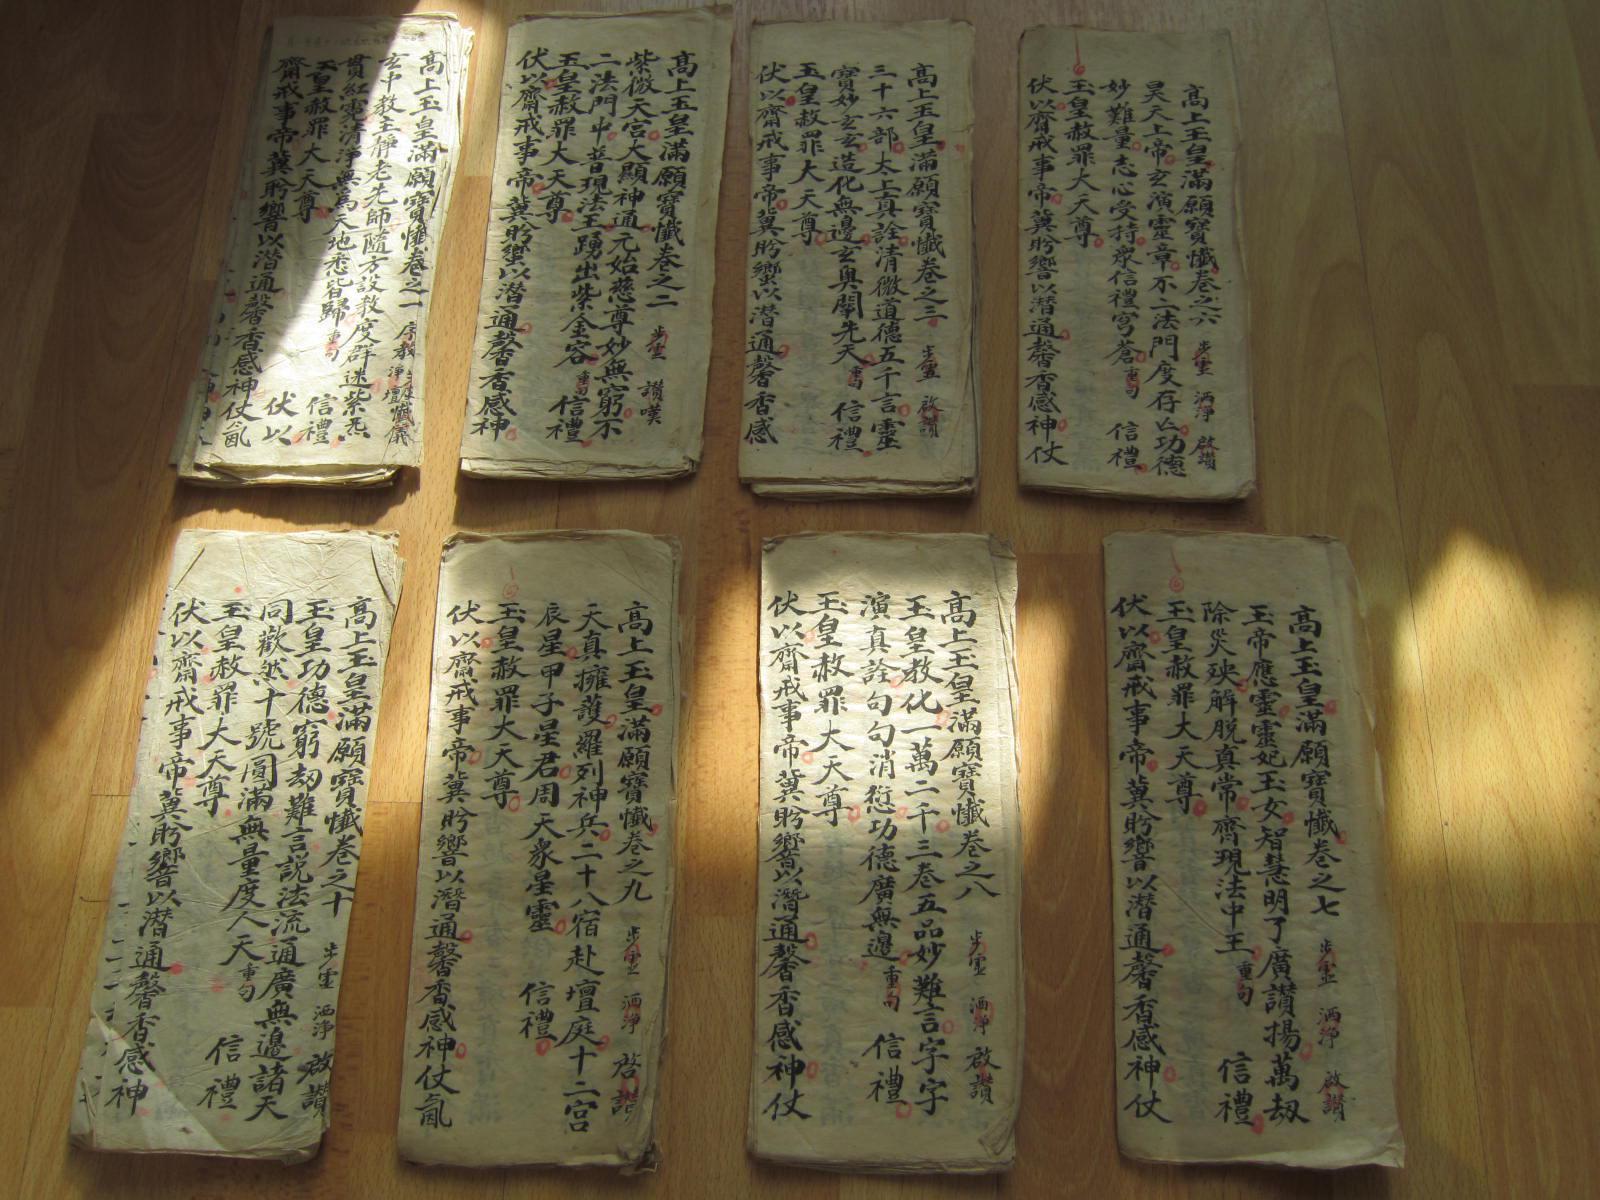 高上玉皇滿願寶懺卷之一 步虛 懺儀
序教 淨壇
玄中教主靜老先師隨方設教度群迷紫炁
貫紅霓清淨無為天地悉皆歸 重句 信禮
玉皇赦罪大天尊 伏以
齋戒事帝冀肹響以潛通馨香感神仗氤
高上玉皇滿願寶懺卷之二 步虛 讚嘆
紫微天宮大顯神通元始慈尊妙無窮不
二法門中普現法王踴出紫金容 重句 信禮
玉皇赦罪大天尊
伏以齋戒事帝冀肹響以潛通馨香感神
高上玉皇滿願寶懺卷之三 步虛 啟讚
三十六部太上真詮清微道德五千言靈
寶妙玄玄造化無邊玄奧闡先天 重句 信禮
玉皇赦罪大天尊
伏以齋戒事帝冀肹響以潛通馨香感
高上玉皇滿願寶懺卷之六 步虛 洒淨 啟讚
昊天上帝玄演靈章不二法門度存亡功德
妙難量志心受持衆信禮穹蒼 重句 信禮
玉皇赦罪大天尊
伏以齋戒事帝冀肹響以潛通馨香感神仗
高上玉皇滿願寶懺卷之十 步虛 洒淨 啟讚
玉皇功德窮劫難言說法流通廣無邊諸天
同歡然十號圓滿無量度人天 重句 信禮
玉皇赦罪大天尊
伏以齋戒事帝冀肹響以潛通馨香感神
高上玉皇滿願寶懺卷之九 步虛 洒淨 啓讚
天真擁護羅列神兵二十八宿赴壇庭十二宮
辰星甲子星君周天衆星靈 信禮
玉皇赦罪大天尊
伏以齋戒事帝冀肹響以潛通馨香感神仗氤
高上玉皇滿願寶懺卷之八 步虛 洒淨 啟讚
玉皇教化一萬二千三卷五品妙難言字字
演真詮句句消愆功德廣無邊 重句 信禮
玉皇赦罪大天尊
伏以齋戒事帝冀肹響以潛通馨香感神仗
高上玉皇滿願寶懺卷之七 步虛 洒淨 啟讚
玉帝應靈靈妃玉女智慧明了廣讚揚萬劫
除災殃解脫真常齊現法中王 重句 信禮
玉皇赦罪大天尊
伏以齋戒事帝冀肹響以潛通馨香感神仗